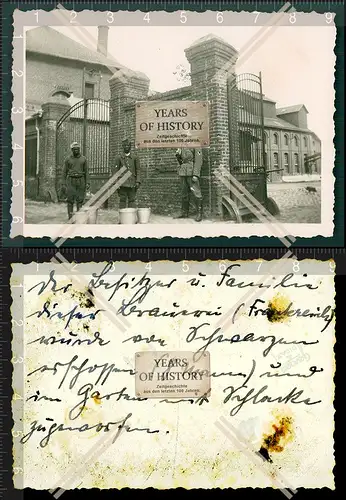 YEARS
OF HISTORY
Zeitgeschichte
aus den letzten 100 Jahren.
der Besitzer u. Familie
dieser Brauerei (Frankreich)
wurde von Schwarzen
erschossen und
im Garten mit Schlacke
zugeworfen.
YEARS
OF HISTORY
Zeitgeschichte
aus den letzten 100 Jahren.